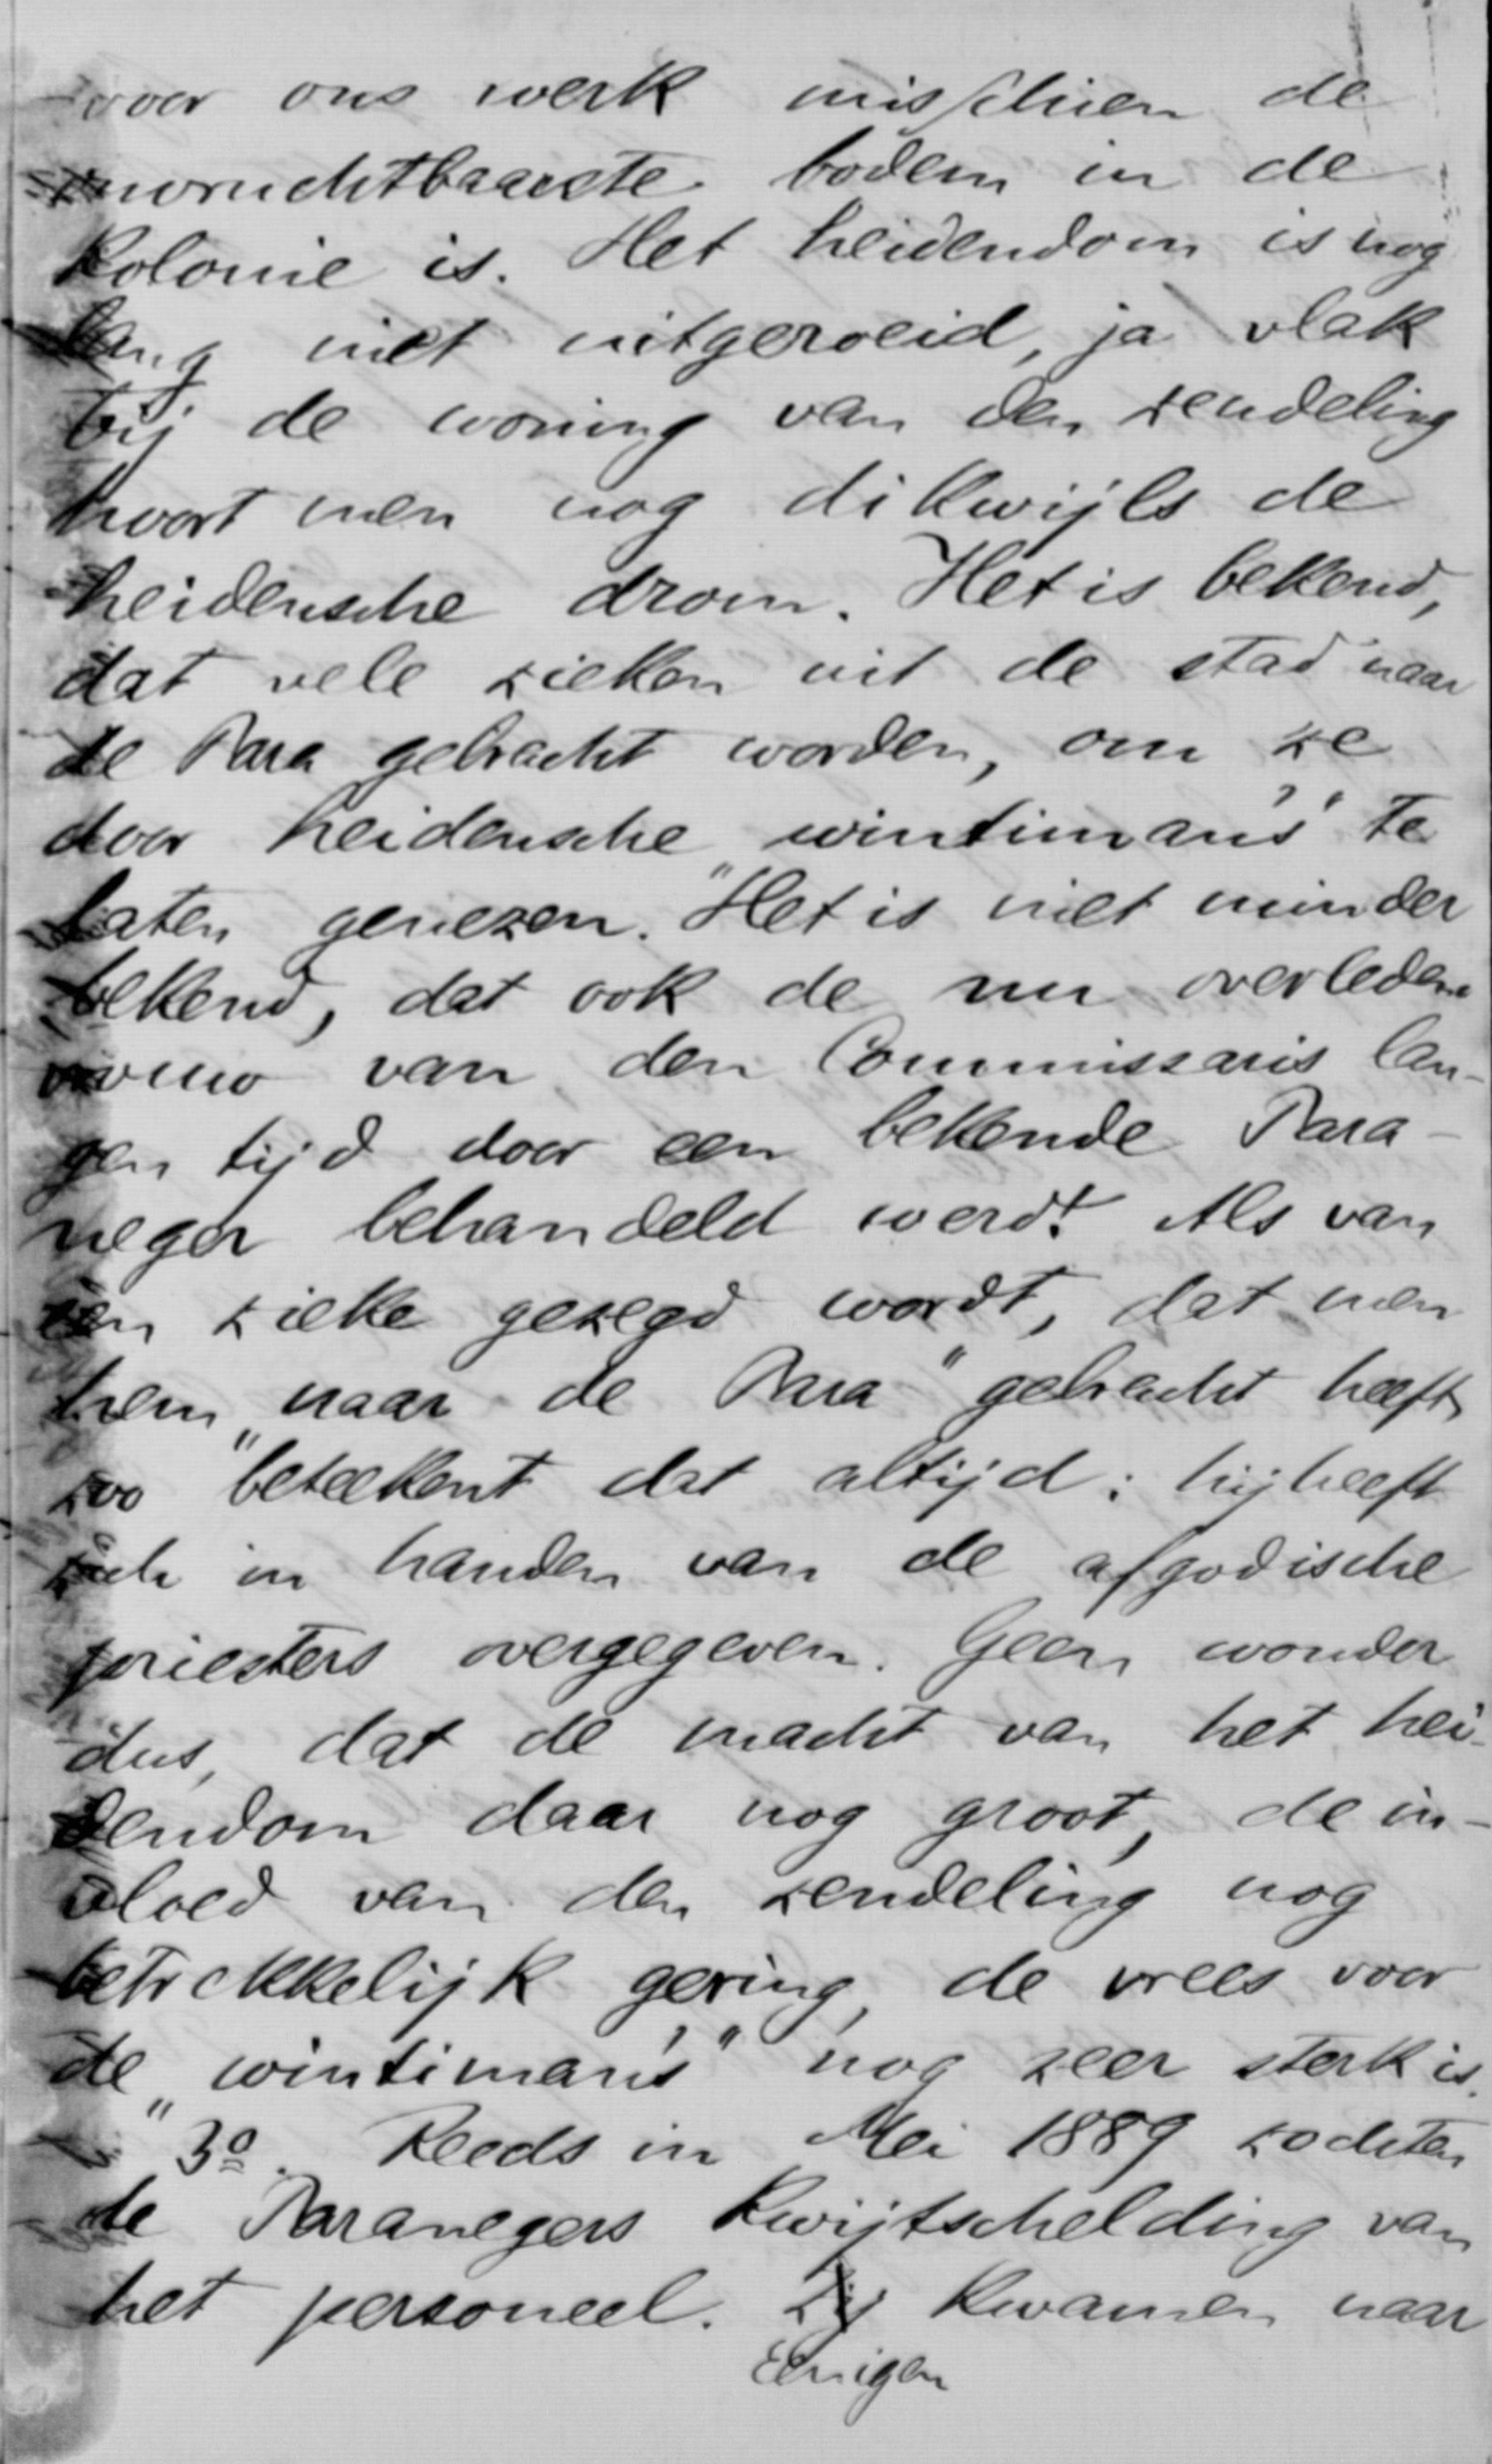 voor ons werk misschien de
onvruchtbaarste bodem in de
Kolonie is. Het heidendom is nog
lang niet uitgeroeid, ja vlak
bij de woning van den zendeling
hoort men nog dikwijls de
heidensche drom. Het is bekend,
dat vele zieken uit de stad naar
de Para gebracht worden, om ze
door heidensche „wintiman's" te
laten genezen. Het is niet minder
bekend, dat ook de nu overledene
vrouw van den Commissaris lan-
gen tijd door een bekende Para-
neger behandeld werd! Als van
een zieke gezegd wordt, dat men
hem „naar de Para" gebracht heeft,
zoo beteekent dat altijd: hij heeft
zich in handen van de afgodische
priesters overgegeven. Geen wonder
dus, dat de macht van het hei-
dendom daar nog groot, de in-
vloed van den zendeling nog
betrekkelijk gering, de vrees voor
de „wintiman's" nog zeer sterk is.
3o. Reeds in Mei 1889 zochten
de Paranegers Kwijtschelding van
het personeel. Zij Kwamen naar
Eenigen